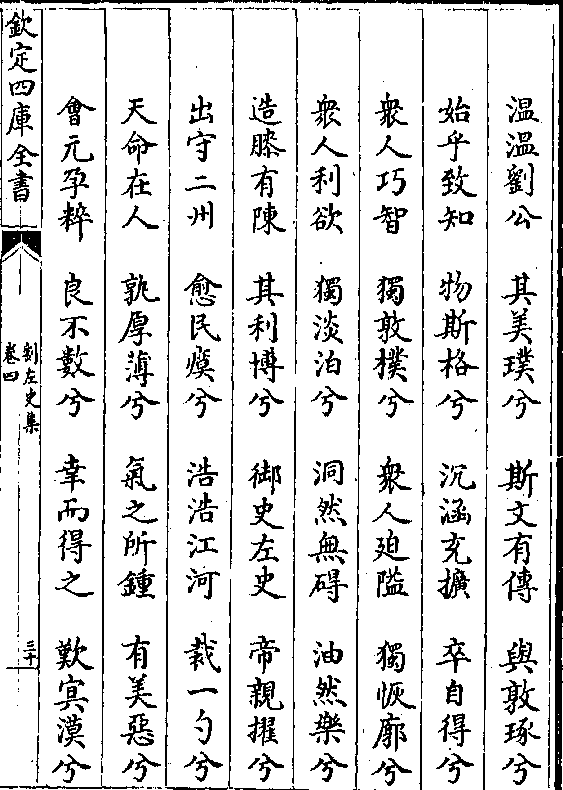 溫溫劉公　其美璞兮　斯文有傳　與敦琢兮
始乎致知　物斯格兮　沉涵充擴　卒自得兮
衆人巧智　獨敦樸兮　衆人廹隘　獨恢廓兮
衆人利欲　獨淡泊兮　洞然無碍　油然樂兮
造膝有陳　其利博兮　御史左史　帝親擢兮
出守二州　愈民瘼兮　浩浩江河　裁一勺兮
天命在人　孰厚薄兮　氣之所鍾　有美惡兮
會元孕粹　良不數兮　幸而得之　歎寞漠兮
欽定四庫全書
劉左史集
卷四
三十